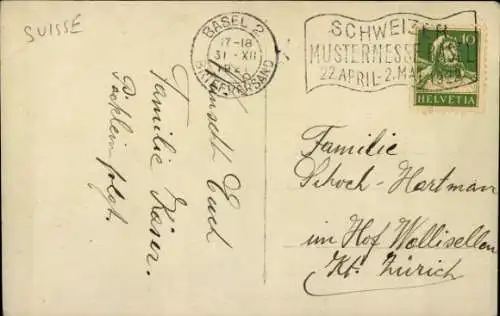 SUISSE
BASEL 2
17-18
31. XII
BRIEFVERSAND
SCHWEIZER
MUSTERMESSE BASEL
22. APRIL - 2. MAI
10
HELVETIA
wünscht Euch
Familie Käser.
Päcklein folgt.
Familie
Schoch-Hartman
im Hof Wallisellen
Kt. Zürich